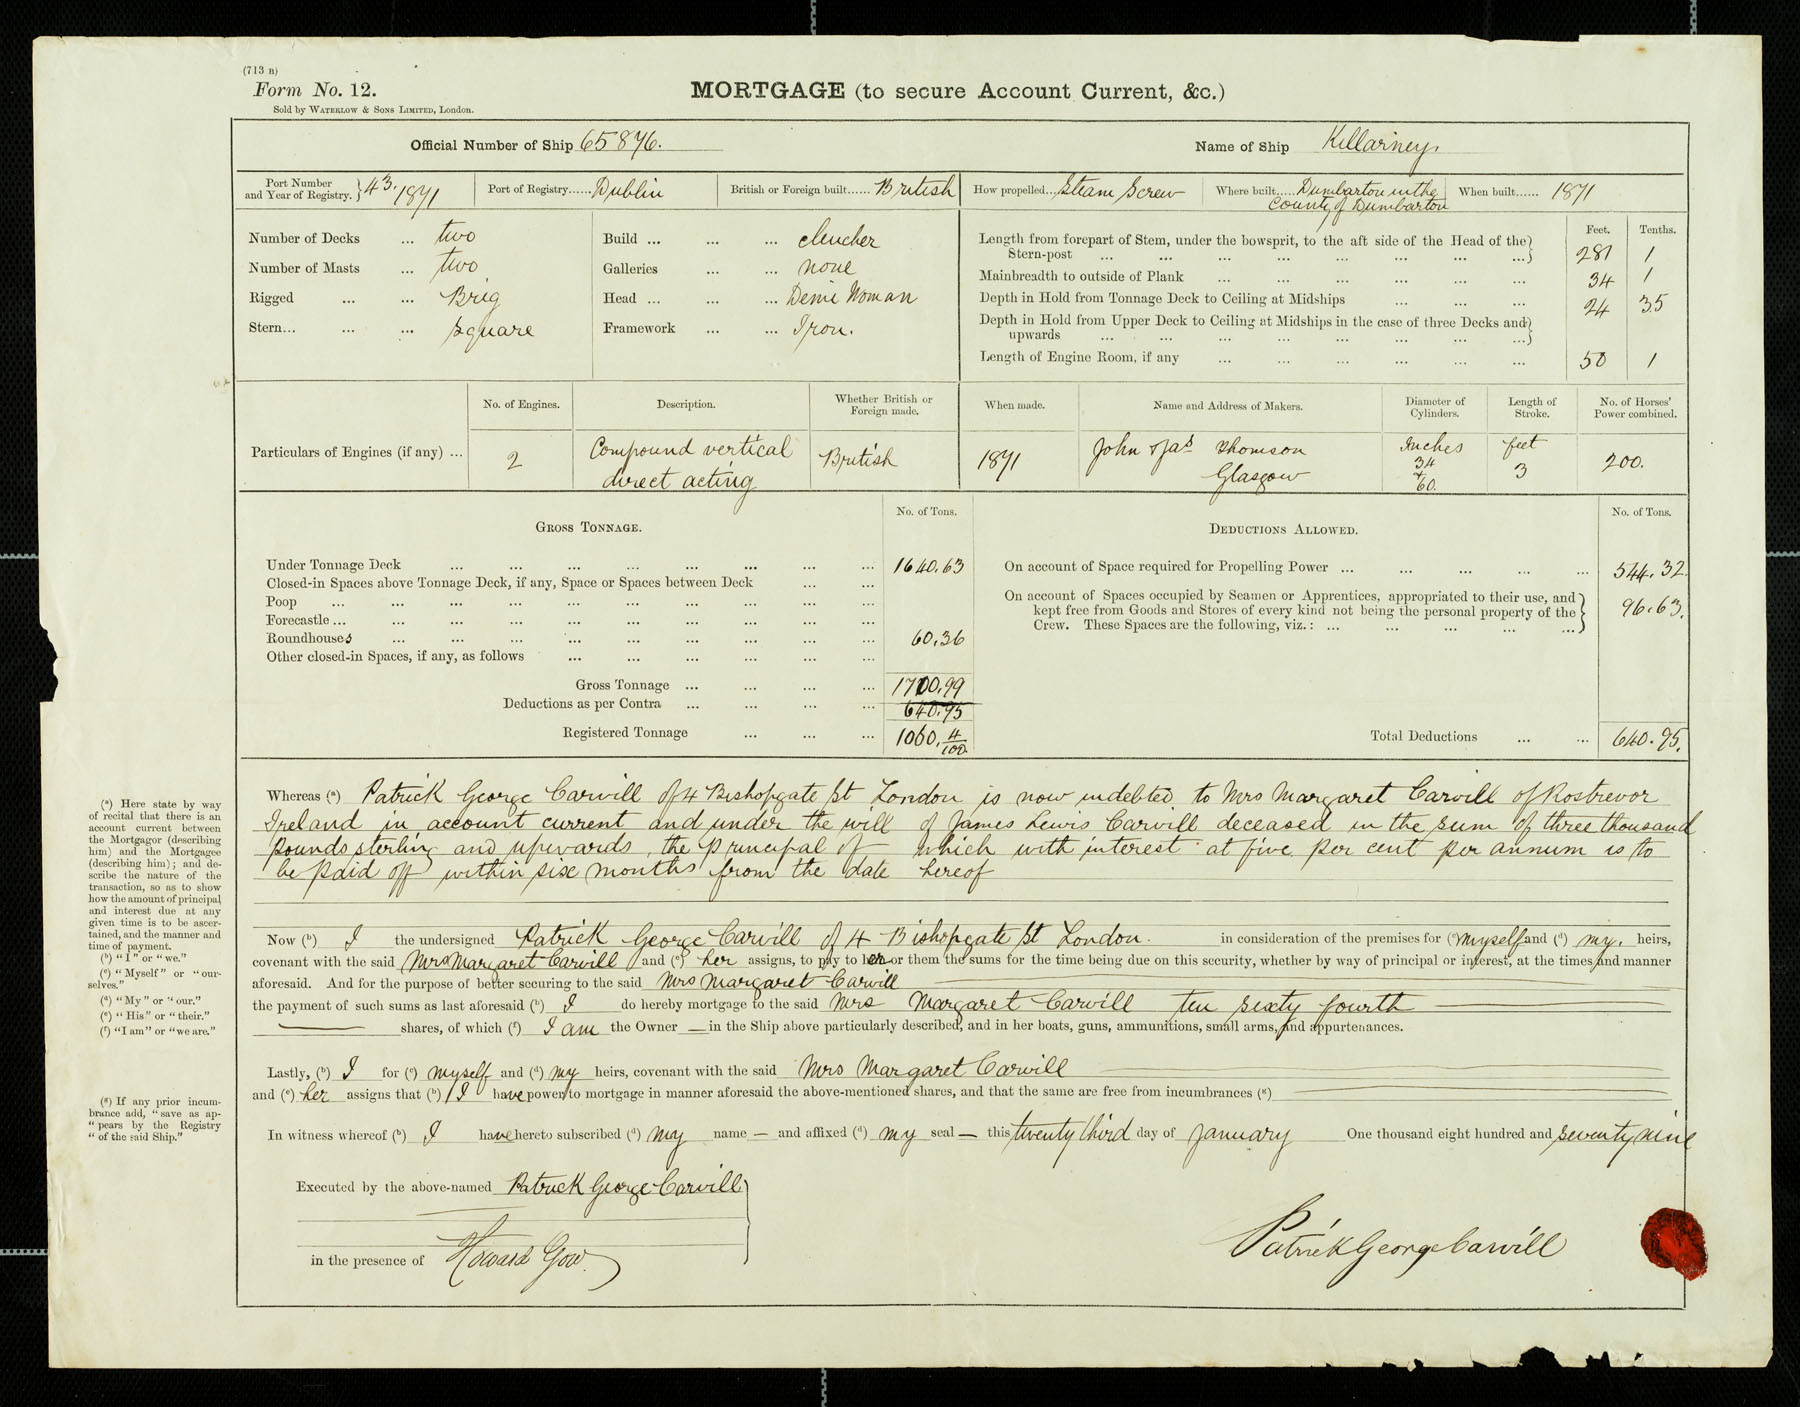 (713 B)
Form No. 12.
Sold by WATERLOW & SONS LIMITED, London.
MORTGAGE (to secure Account Current, &c.)
Official Number of Ship 65876.
Name of Ship Killarney.
Port Number and Year of Registry. } 43. 1871
Port of Registry...... Dublin
British or Foreign built...... British
How propelled... Steam Screw
Where built..... Dumbarton in the County of Dumbarton
When built...... 1871
Number of Decks ... two
Number of Masts ... two
Rigged ... ... Brig
Stern... ... ... Square
Build ... ... ... clencher
Galleries ... ... none
Head ... ... ... Demi Woman
Framework ... ... Iron.
Feet. Tenths.
Length from forepart of Stem, under the bowsprit, to the aft side of the Head of the }
Stern-post ... ... ... ... ... ... ... ...} 281 1
Mainbreadth to outside of Plank ... ... ... ... ... ... 34 1
Depth in Hold from Tonnage Deck to Ceiling at Midships ... ... ... 24 35
Depth in Hold from Upper Deck to Ceiling at Midships in the case of three Decks and }
upwards ... ... ... ... ... ... ... ...}
Length of Engine Room, if any ... ... ... ... ... ... 50 1
Particulars of Engines (if any) ...
No. of Engines.
2
Description.
Compound vertical
direct acting
Whether British or
Foreign made.
British
When made.
1871
Name and Address of Makers.
John & Jas Thomson
Glasgow
Diameter of
Cylinders.
Inches
34
+
60.
Length of
Stroke.
feet
3
No. of Horses'
Power combined.
200.
GROSS TONNAGE.
No. of Tons.
Under Tonnage Deck ... ... ... ... ... ... ... ... 1640.63
Closed-in Spaces above Tonnage Deck, if any, Space or Spaces between Deck ... ...
Poop ... ... ... ... ... ... ... ... ... ...
Forecastle ... ... ... ... ... ... ... ... ... ...
Roundhouses ... ... ... ... ... ... ... ... ... 60.36
Other closed-in Spaces, if any, as follows ... ... ... ... ... ...
Gross Tonnage ... ... ... ... 1700.99
Deductions as per Contra ... ... ... ... 640.95
Registered Tonnage ... ... ... 1060.4/100
DEDUCTIONS ALLOWED.
No. of Tons.
On account of Space required for Propelling Power ... ... ... ... ... 544.32.
On account of Spaces occupied by Seamen or Apprentices, appropriated to their use, and }
kept free from Goods and Stores of every kind not being the personal property of the } 96.63.
Crew. These Spaces are the following, viz.: ... ... ... ... ...}
Total Deductions ... ... 640.95.
Whereas (a) Patrick George Carvill of 4 Bishopgate St London is now indebted to Mrs Margaret Carvill of Rostrevor
Ireland in account current and under the will of James Lewis Carvill deceased in the sum of three thousand
pounds sterling and upwards, the principal of which with interest at five per cent per annum is to
be paid off within six months from the date hereof
Now (b) I the undersigned Patrick George Carvill of 4 Bishopgate St London. in consideration of the premises for (c) myself and (d) my heirs,
covenant with the said Mrs Margaret Carvill and (e) her assigns, to pay to her or them the sums for the time being due on this security, whether by way of principal or interest, at the times and manner
aforesaid. And for the purpose of better securing to the said Mrs Margaret Carvill
the payment of such sums as last aforesaid (b) I do hereby mortgage to the said Mrs Margaret Carvill ten sixty fourth
shares, of which (f) I am the Owner — in the Ship above particularly described, and in her boats, guns, ammunitions, small arms, and appurtenances.
Lastly, (b) I for (c) myself and (d) my heirs, covenant with the said Mrs Margaret Carvill
and (e) her assigns that (b) I have power to mortgage in manner aforesaid the above-mentioned shares, and that the same are free from incumbrances (g)
In witness whereof (b) I have hereto subscribed (d) my name — and affixed (d) my seal — this twenty third day of January One thousand eight hundred and seventy nine
Executed by the above-named Patrick George Carvill
in the presence of Howard Gow.
Patrick George Carvill
(a) Here state by way
of recital that there is an
account current between
the Mortgagor (describing
him) and the Mortgagee
(describing him); and de-
scribe the nature of the
transaction, so as to show
how the amount of principal
and interest due at any
given time is to be ascer-
tained, and the manner and
time of payment.
(b) "I" or "we."
(c) "Myself" or "our-
selves."
(d) "My" or "our."
(e) "His" or "their."
(f) "I am" or "we are."
(g) If any prior incum-
brance add, "save as ap-
"pears by the Registry
"of the said Ship."